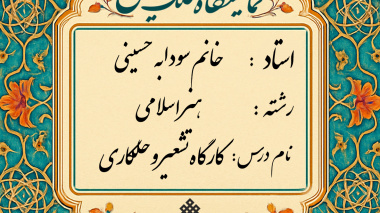 نمایشگاه
استاد : خانم سودابه حسینی
رشته : هنر اسلامی
نام درس: کارگاه تشعیر و حلکاری